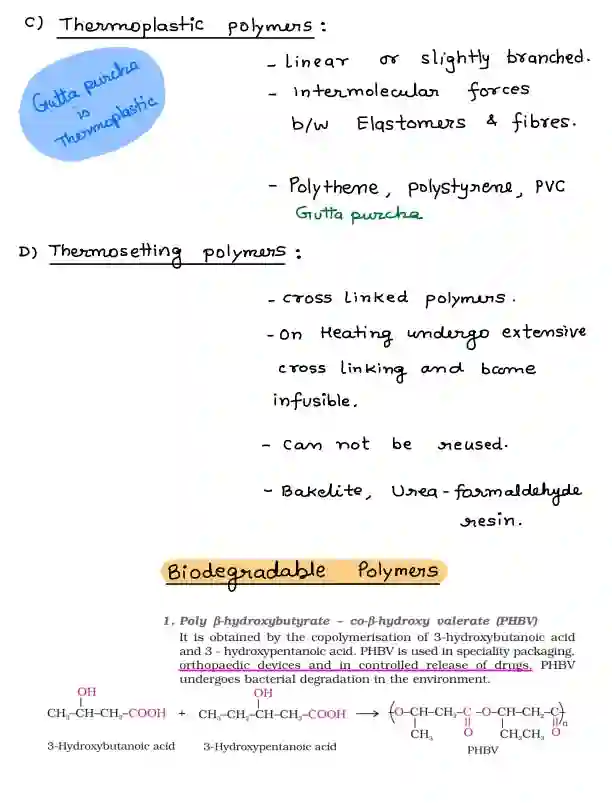 C) Thermoplastic polymers :
Gutta purcha
is
Thermoplastic
- Linear or slightly branched.
- intermolecular forces
b/w Elastomers & fibres.
- Polytheme, polystyrene, PVC
Gutta purcha
D) Thermosetting polymers :
- cross linked polymers.
- On Heating undergo extensive
cross linking and bcome
infusible.
- can not be reused.
- Bakelite, Urea-formaldehyde
resin.
Biodegradable Polymers
1. Poly β-hydroxybutyrate – co-β-hydroxy valerate (PHBV)
It is obtained by the copolymerisation of 3-hydroxybutanoic acid
and 3 - hydroxypentanoic acid. PHBV is used in speciality packaging,
orthopaedic devices and in controlled release of drugs. PHBV
undergoes bacterial degradation in the environment.
OH OH
CH₃–CH–CH₂–COOH + CH₃–CH₂–CH–CH₂–COOH ⟶ (O–CH–CH₂–C–O–CH–CH₂–C)n
CH₃ O CH₂CH₃ O
3-Hydroxybutanoic acid 3-Hydroxypentanoic acid PHBV